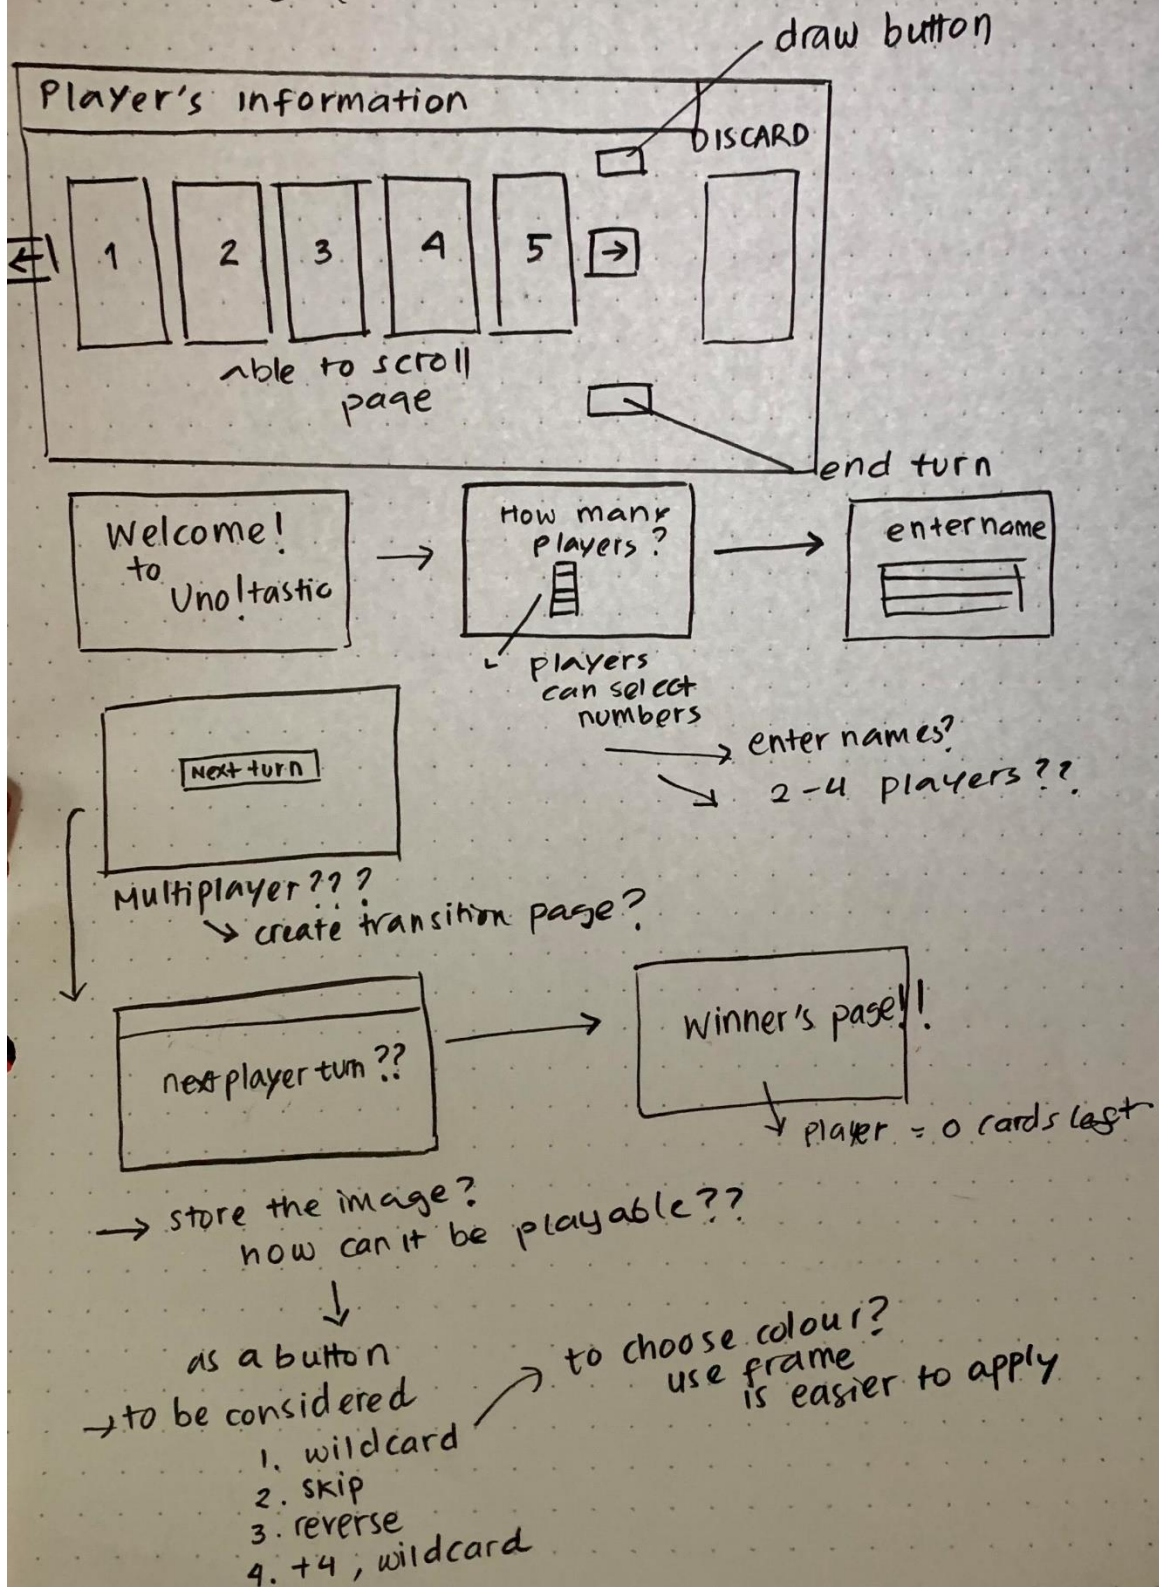 draw button
Player's information
DISCARD
1 2 3 4 5
able to scroll
page
end turn
Welcome!
to
Uno!tastic
How many
players?
enter name
players
can select
numbers
enter names?
2-4 players??
Next turn
Multiplayer???
create transition page?
next player turn??
Winner's page!!
player = 0 cards left
store the image?
how can it be playable??
as a button
to be considered
1. wildcard
2. skip
3. reverse
4. +4, wildcard
to choose colour?
use frame
is easier to apply